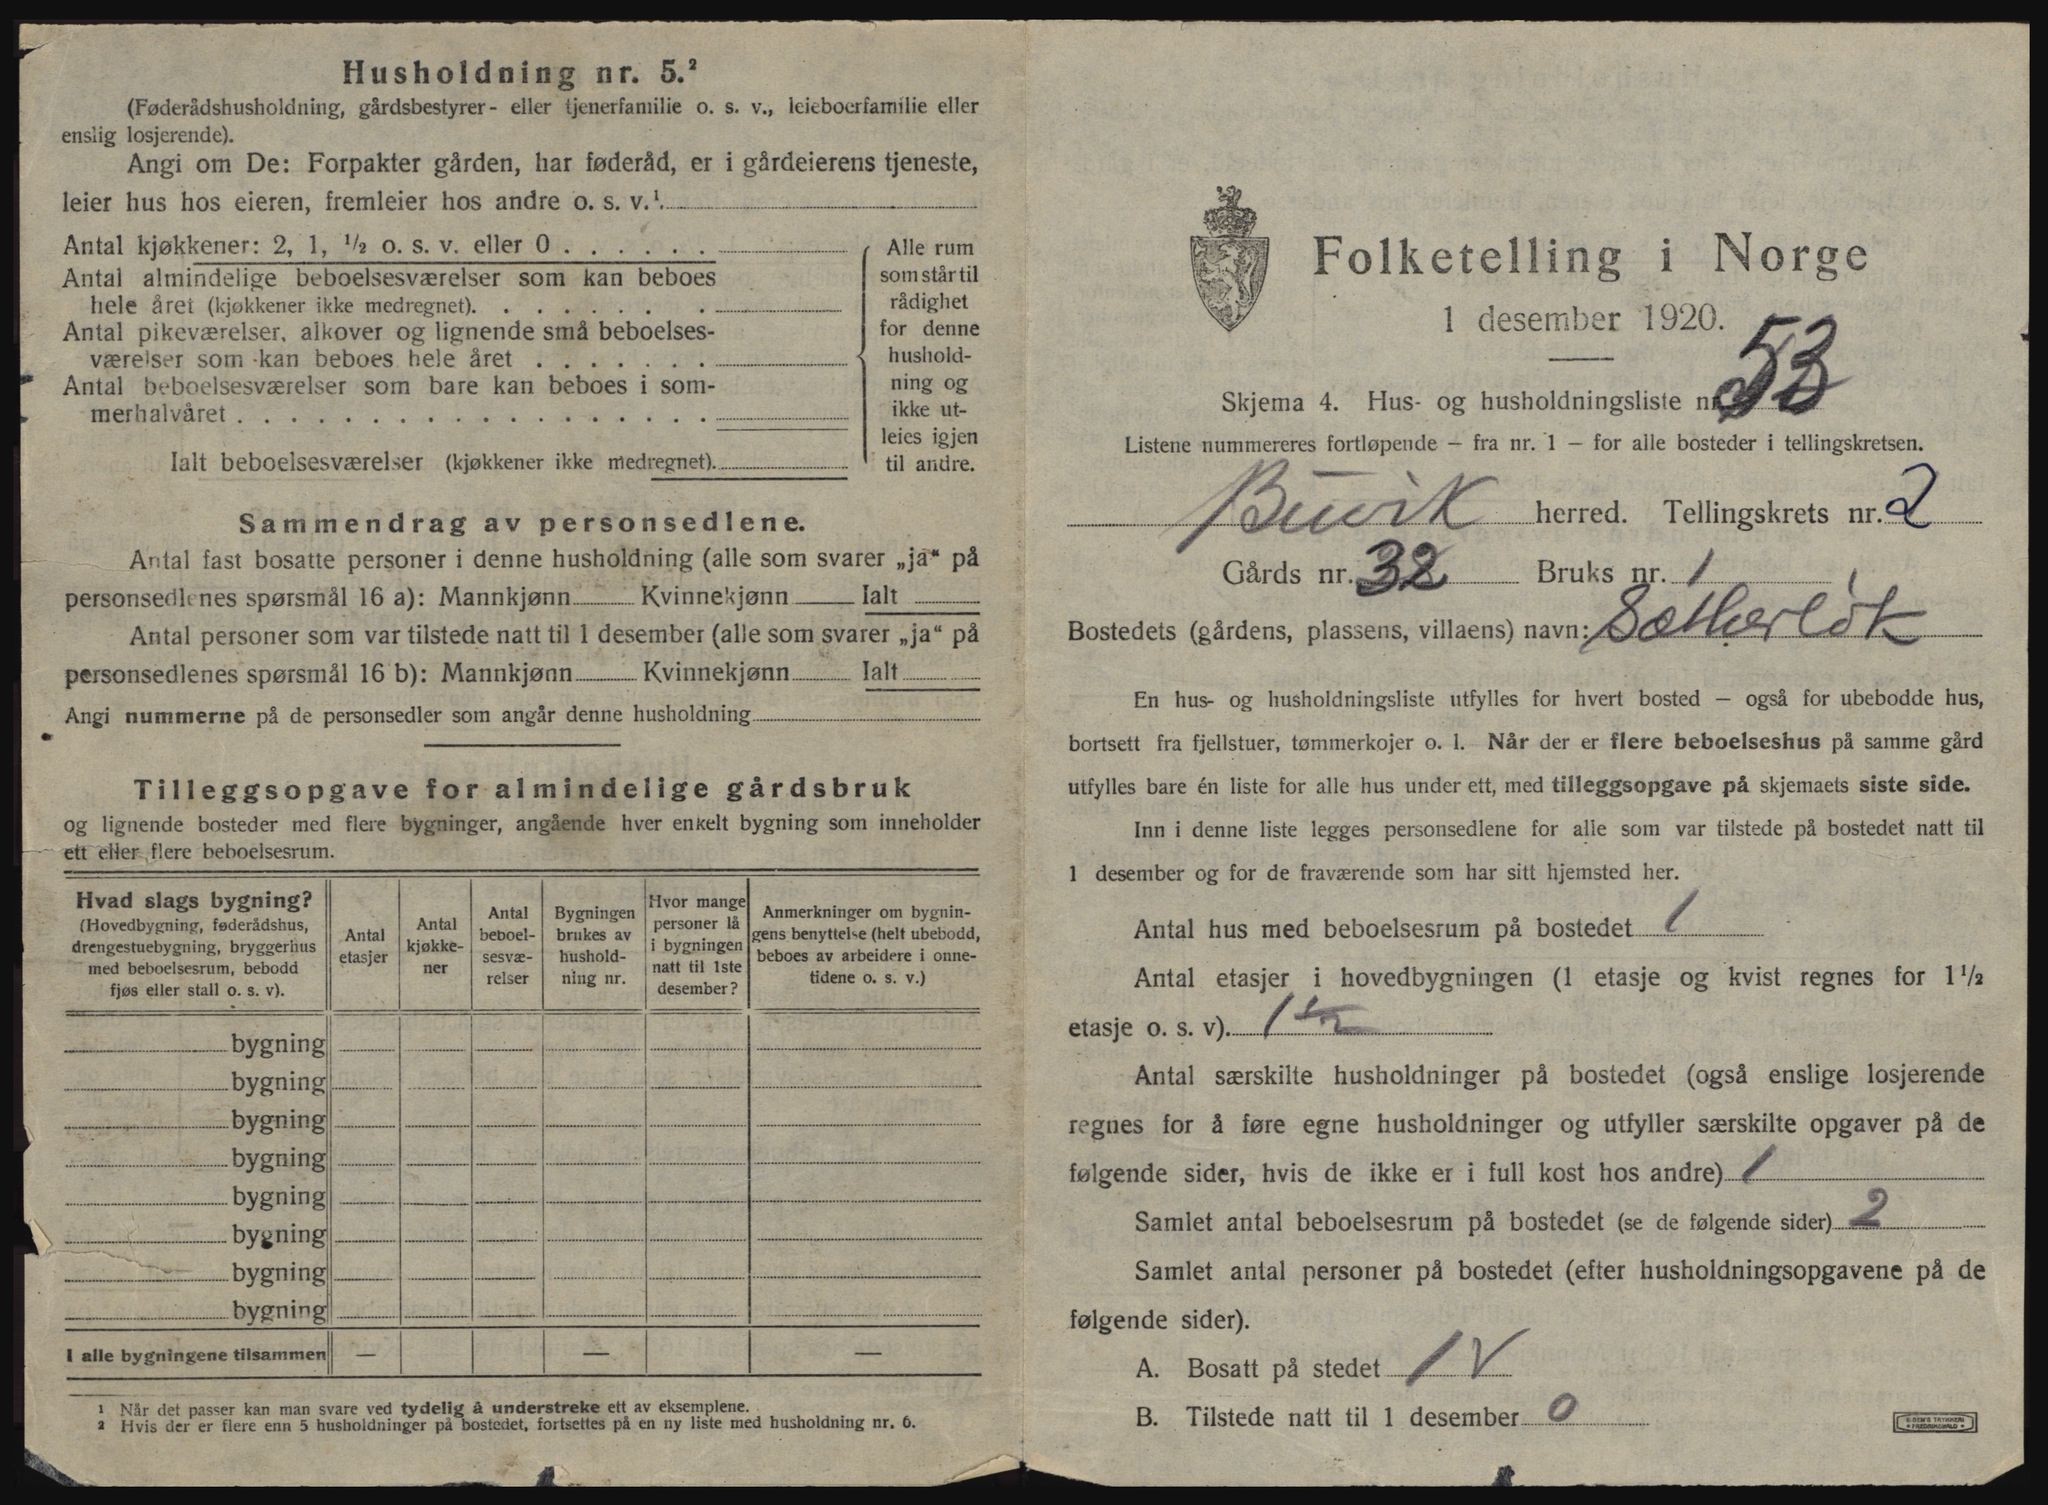 Husholdning nr. 5.²
(Føderådshusholdning, gårdsbestyrer- eller tjenerfamilie o. s. v., leieboerfamilie eller
enslig losjerende).
Angi om De: Forpakter gården, har føderåd, er i gårdeierens tjeneste,
leier hus hos eieren, fremleier hos andre o. s. v.¹.
Antal kjøkkener: 2, 1, ½ o. s. v. eller 0 . . . . . .
Antal almindelige beboelsesværelser som kan beboes
hele året (kjøkkener ikke medregnet). . . . . . . .
Antal pikeværelser, alkover og lignende små beboelses-
værelser som kan beboes hele året . . . . . . .
Antal beboelsesværelser som bare kan beboes i som-
merhalvåret . . . . . . . . . . . . . . . . . .
Ialt beboelsesværelser (kjøkkener ikke medregnet).
Alle rum
som står til
rådighet
for denne
hushold-
ning og
ikke ut-
leies igjen
til andre.
Sammendrag av personsedlene.
Antal fast bosatte personer i denne husholdning (alle som svarer „ja“ på
personsedlenes spørsmål 16 a): Mannkjønn Kvinnekjønn Ialt
Antal personer som var tilstede natt til 1 desember (alle som svarer „ja“ på
personsedlenes spørsmål 16 b): Mannkjønn Kvinnekjønn Ialt
Angi nummerne på de personsedler som angår denne husholdning
Tilleggsopgave for almindelige gårdsbruk
og lignende bosteder med flere bygninger, angående hver enkelt bygning som inneholder
ett eller flere beboelsesrum.
Hvad slags bygning?
(Hovedbygning, føderådshus,
drengestuebygning, bryggerhus
med beboelsesrum, bebodd
fjøs eller stall o. s. v).
Antal
etasjer
Antal
kjøkke-
ner
Antal
beboel-
sesvæ-
relser
Bygningen
brukes av
hushold-
ning nr.
Hvor mange
personer lå
i bygningen
natt til 1ste
desember?
Anmerkninger om bygnin-
gens benyttelse (helt ubebodd,
beboes av arbeidere i onne-
tidene o. s. v.)
bygning
bygning
bygning
bygning
bygning
bygning
bygning
bygning
I alle bygningene tilsammen — — —
¹ Når det passer kan man svare ved tydelig å understreke ett av eksemplene.
² Hvis der er flere enn 5 husholdninger på bostedet, fortsettes på en ny liste med husholdning nr. 6.
Folketelling i Norge
1 desember 1920.
Skjema 4. Hus- og husholdningsliste nr. 53
Listene nummereres fortløpende — fra nr. 1 — for alle bosteder i tellingskretsen.
Buvik herred. Tellingskrets nr. 2
Gårds nr. 32 Bruks nr. 1
Bostedets (gårdens, plassens, villaens) navn: Sætherløk
En hus- og husholdningsliste utfylles for hvert bosted — også for ubebodde hus,
bortsett fra fjellstuer, tømmerkojer o. l. Når der er flere beboelseshus på samme gård
utfylles bare én liste for alle hus under ett, med tilleggsopgave på skjemaets siste side.
Inn i denne liste legges personsedlene for alle som var tilstede på bostedet natt til
1 desember og for de fraværende som har sitt hjemsted her.
Antal hus med beboelsesrum på bostedet 1
Antal etasjer i hovedbygningen (1 etasje og kvist regnes for 1½
etasje o. s. v). 1½
Antal særskilte husholdninger på bostedet (også enslige losjerende
regnes for å føre egne husholdninger og utfyller særskilte opgaver på de
følgende sider, hvis de ikke er i full kost hos andre) 1
Samlet antal beboelsesrum på bostedet (se de følgende sider) 2
Samlet antal personer på bostedet (efter husholdningsopgavene på de
følgende sider).
A. Bosatt på stedet 1 V
B. Tilstede natt til 1 desember 0